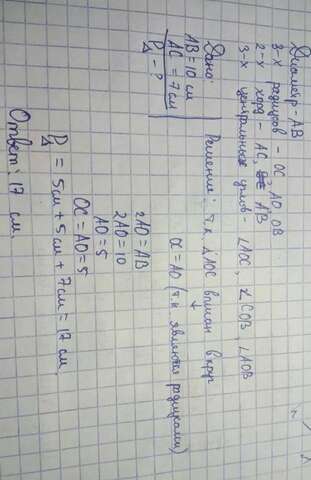 Диаметр - AB
3-х радиусов - OC, AO, OB
2-х хорд - AC, AB
3-х центральных углов - ∠AOC, ∠COB, ∠AOB
Дано:
AB = 10 см
AC = 7 см
P△ - ?
Решение: т.к △AOC вписан в круг
↓
OC = AO (т.к являются радиусами)
2AO = AB
2AO = 10
AO = 5
OC = AO = 5
P△ = 5см + 5 см + 7см = 17 см.
Ответ: 17 см.